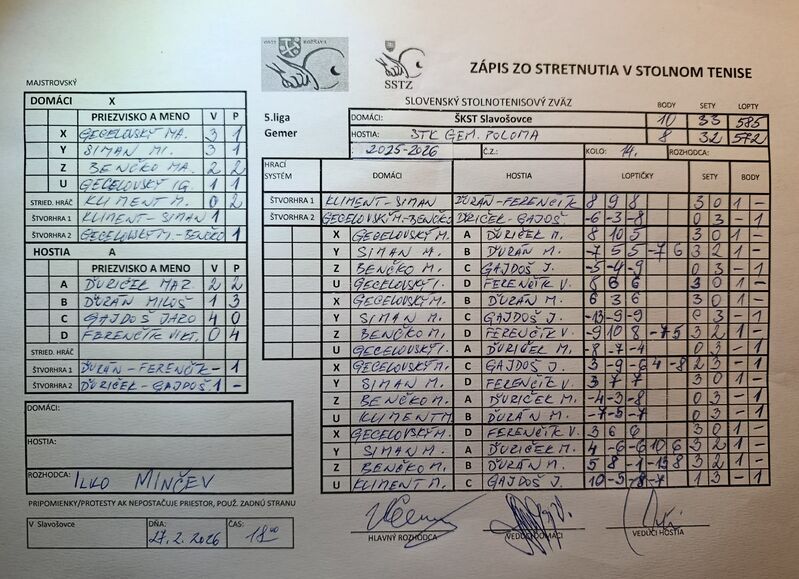 OSTZ ROŽŇAVA
SSTZ
ZÁPIS ZO STRETNUTIA V STOLNOM TENISE
MAJSTROVSKÝ
SLOVENSKÝ STOLNOTENISOVÝ ZVÄZ
BODY SETY LOPTY
5.liga DOMÁCI: ŠKST Slavošovce 10 33 585
Gemer HOSTIA: STK GEM. POLOMA 8 32 572
2025-2026 Č.Z.: KOLO: 14. ROZHODCA:
DOMÁCI X
PRIEZVISKO A MENO V P
X GECELOVSKÝ MA. 3 1
Y SIMAN MI. 3 1
Z BENČKO MA. 2 2
U GECELOVSKÝ IG. 1 1
STRIED. HRÁČ KLIMENT M. 0 2
ŠTVORHRA 1 KLIMENT-SIMAN 1
ŠTVORHRA 2 GECELOVSKÝ M.-BENČKO 1
HOSTIA A
PRIEZVISKO A MENO V P
A ĎURIČEK MAR. 2 2
B ĎURÁN MILOŠ 1 3
C GAJDOŠ JARO 4 0
D FERENČÍK VIKT. 0 4
STRIED. HRÁČ
ŠTVORHRA 1 ĎURÁN-FERENČÍK - 1
ŠTVORHRA 2 ĎURIČEK-GAJDOŠ 1 -
DOMÁCI:
HOSTIA:
ROZHODCA: ILKO MINČEV
PRIPOMIENKY/PROTESTY AK NEPOSTAČUJE PRIESTOR, POUŽ. ZADNÚ STRANU
V Slavošovce DŇA: 27.2.2026 ČAS: 18 00
HRACÍ SYSTÉM DOMÁCI HOSTIA LOPTIČKY SETY BODY
ŠTVORHRA 1 KLIMENT-SIMAN ĎURÁN-FERENČÍK 8 9 8 3 0 1 -
ŠTVORHRA 2 GECELOVSKÝ M.-BENČKO ĎURIČEK-GAJDOŠ -6 -3 -8 0 3 - 1
X GECELOVSKÝ M. A ĎURIČEK M. 8 10 5 3 0 1 -
Y SIMAN M. B ĎURÁN M. -7 5 5 -7 6 3 2 1 -
Z BENČKO M. C GAJDOŠ J. -5 -4 -9 0 3 - 1
U GECELOVSKÝ I. D FERENČÍK V. 6 6 3 0 1 -
X GECELOVSKÝ M. B ĎURÁN M. 6 3 6 3 0 1 -
Y SIMAN M. C GAJDOŠ J. -13 -9 -9 0 3 - 1
Z BENČKO M. D FERENČÍK V. -9 10 8 -7 5 3 2 1 -
U GECELOVSKÝ I. A ĎURIČEK M. -8 -7 -4 0 3 - 1
X GECELOVSKÝ M. C GAJDOŠ J. 3 -9 -6 4 -8 2 3 - 1
Y SIMAN M. D FERENČÍK V. 3 7 7 3 0 1 -
Z BENČKO M. A ĎURIČEK M. -4 -3 -8 0 3 - 1
U KLIMENT M. B ĎURÁN M. -7 -5 -7 0 3 - 1
X GECELOVSKÝ M. D FERENČÍK V. 3 6 6 3 0 1 -
Y SIMAN M. A ĎURIČEK M. 4 -6 -6 10 6 3 2 1 -
Z BENČKO M. B ĎURÁN M. 5 8 -1 -13 8 3 2 1 -
U KLIMENT M. C GAJDOŠ J. 10 -5 -8 -7 1 3 - 1
HLAVNÝ ROZHODCA VEDÚCI DOMÁCI VEDÚCI HOSTIA